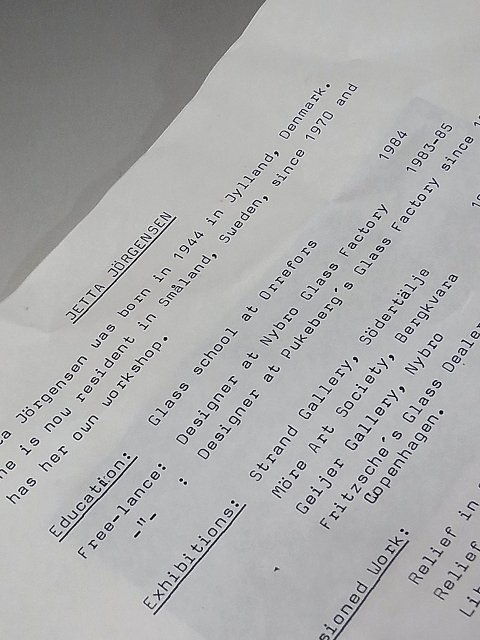 JETTA JÖRGENSEN
Jörgensen was born in 1944 in Jylland, Denmark.
is now resident in Småland, Sweden, since 1970 and
has her own workshop.
Education: Glass school at Orrefors 1984
Free-lance: Designer at Nybro Glass Factory 1983-85
-"- : Designer at Pukeberg´s Glass Factory since
Exhibitions: Strand Gallery, Södertälje
Möre Art Society, Bergkvara
Geijer Gallery, Nybro
Fritzsche´s Glass Dealer
Copenhagen.
Work: Relief in
Relief